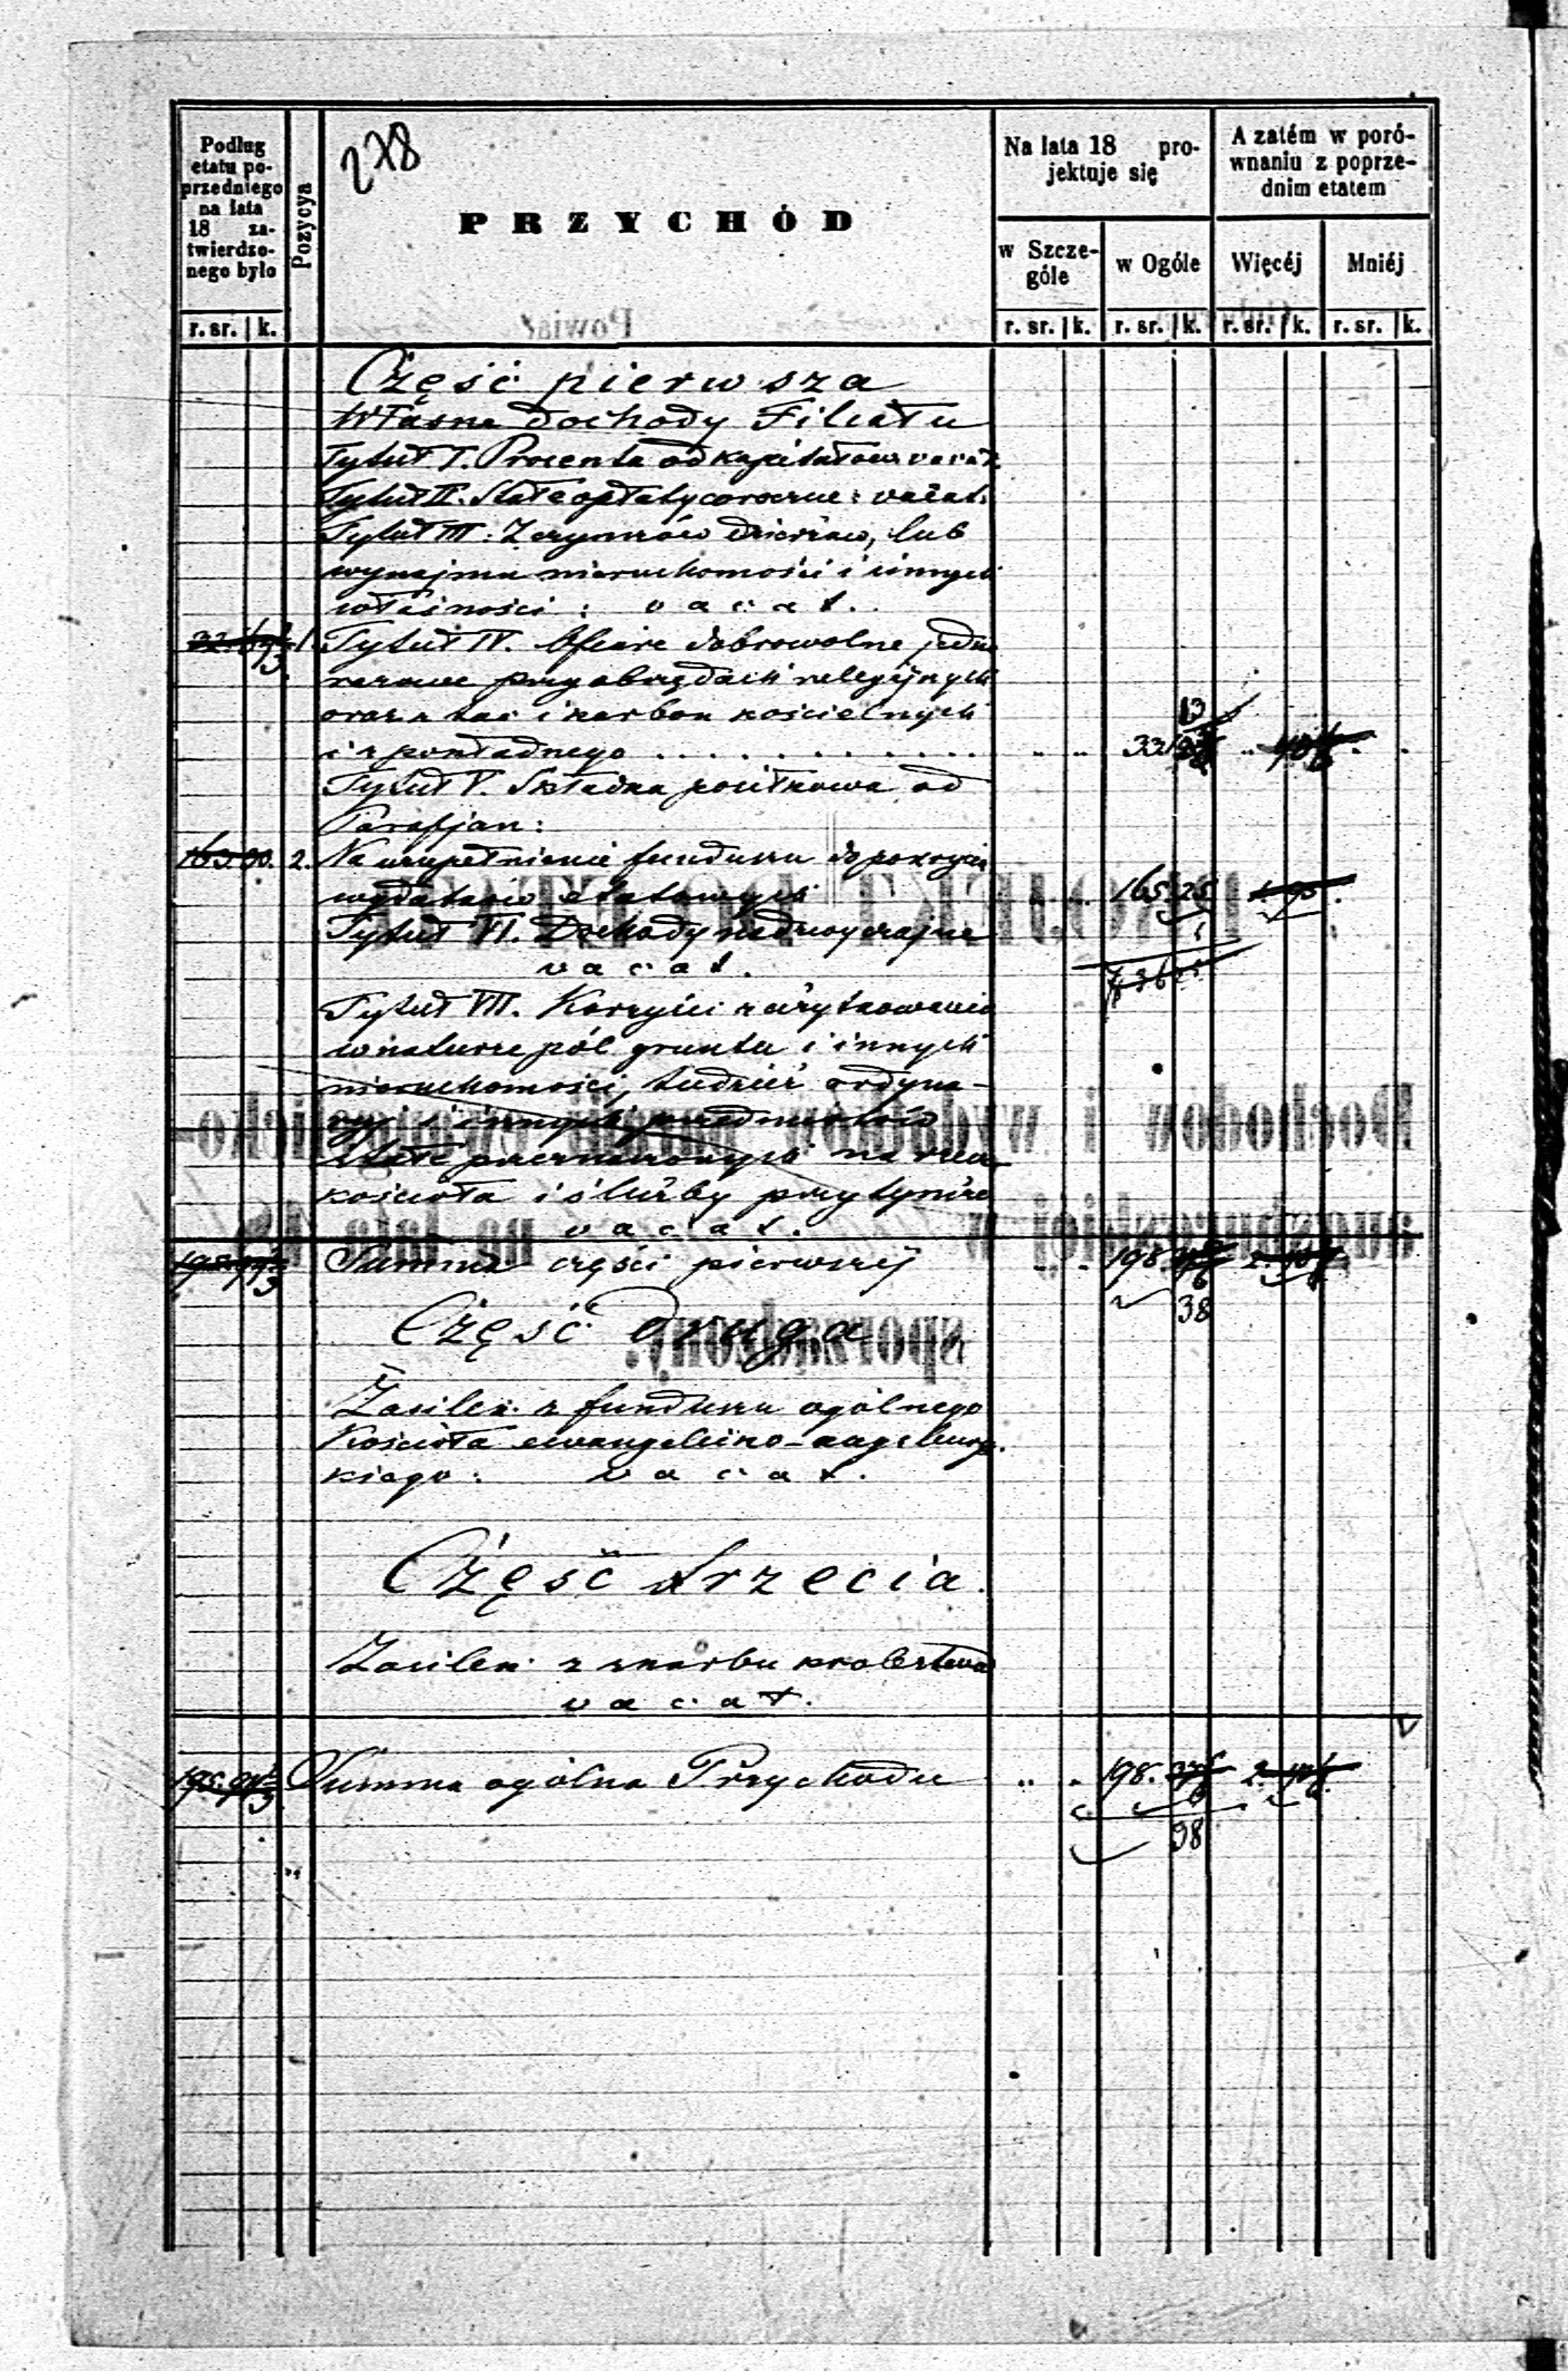 278
Podług etatu poprzedniego na lata 18 zatwierdzonego było
Pozycya
PRZYCHÓD
Na lata 18 projektuje się
A zatém w porównaniu z poprzednim etatem
w Szczególe
w Ogóle
Więcéj
Mniéj
r. sr. k. r. sr. k. r. sr. k. r. sr. k. r. sr. k.
Powiat
Część pierwsza
Własne dochody Filiału
Tytuł I. Procenta od kapitałów vacat.
Tytuł II. Stałe opłaty coroczne: vacat.
Tytuł III: Z czynszów dzierżaw, lub
wynajmu nieruchomości i innych
własności: vacat.
1. Tytuł IV. Ofiary dobrowolne jedno
razowe przy obrzędach religijnych
oraz z tac i karbon kościelnych
i z pokładnego 33
Tytuł V. Składka posiłkowa od
Parafjan:
163 30. 2. Na uzupełnienie funduszu do pokrycia
wydatków etatowych 165.25
Tytuł VI. Dochody nadzwyczajne
vacat.
Tytuł VII. Korzyści z użytkowania
w naturze pól gruntu i innych
nieruchomości, tudzież ordyna-
ryi i innych przedmiotów
stałe przeznaczonych na rzecz
kościoła i służby przy tymże
vacat.
Summa części pierwszej 198.
38
Część druga
Zasiłek z funduszu ogólnego
Kościoła ewangelicko-augsburgs.
kiego: vacat.
Część trzecia.
Zasiłek z skarbu królestwa
vacat.
Summa ogólna Przychodu 198.
38
PROJEKT DO ETATU
Dochodów i wydatków parafii ewangelicko-
augsburgskiej w na lata 18
sporządzony.